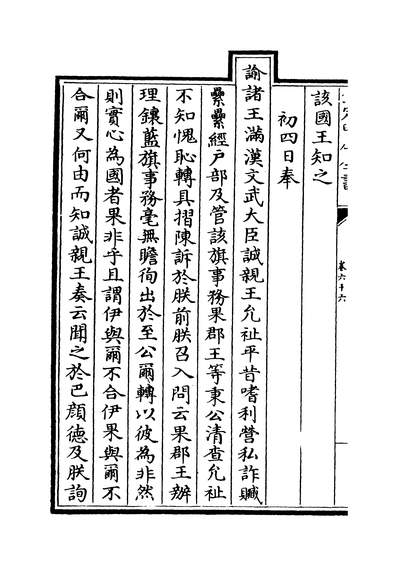 卷六十六
該國王知之
初四日奉
諭諸王滿漢文武大臣誠親王允祉平昔嗜利營私詐贓
纍纍經戶部及管該旗事務果郡王等秉公清查允祉
不知愧恥轉具摺陳訴於朕前朕召入問云果郡王辦
理鑲藍旗事務毫無瞻徇出於至公爾轉以彼為非然
則實心為國者果非乎且謂伊與爾不合伊果與爾不
合爾又何由而知誠親王奏云聞之於巴顔德及朕詢